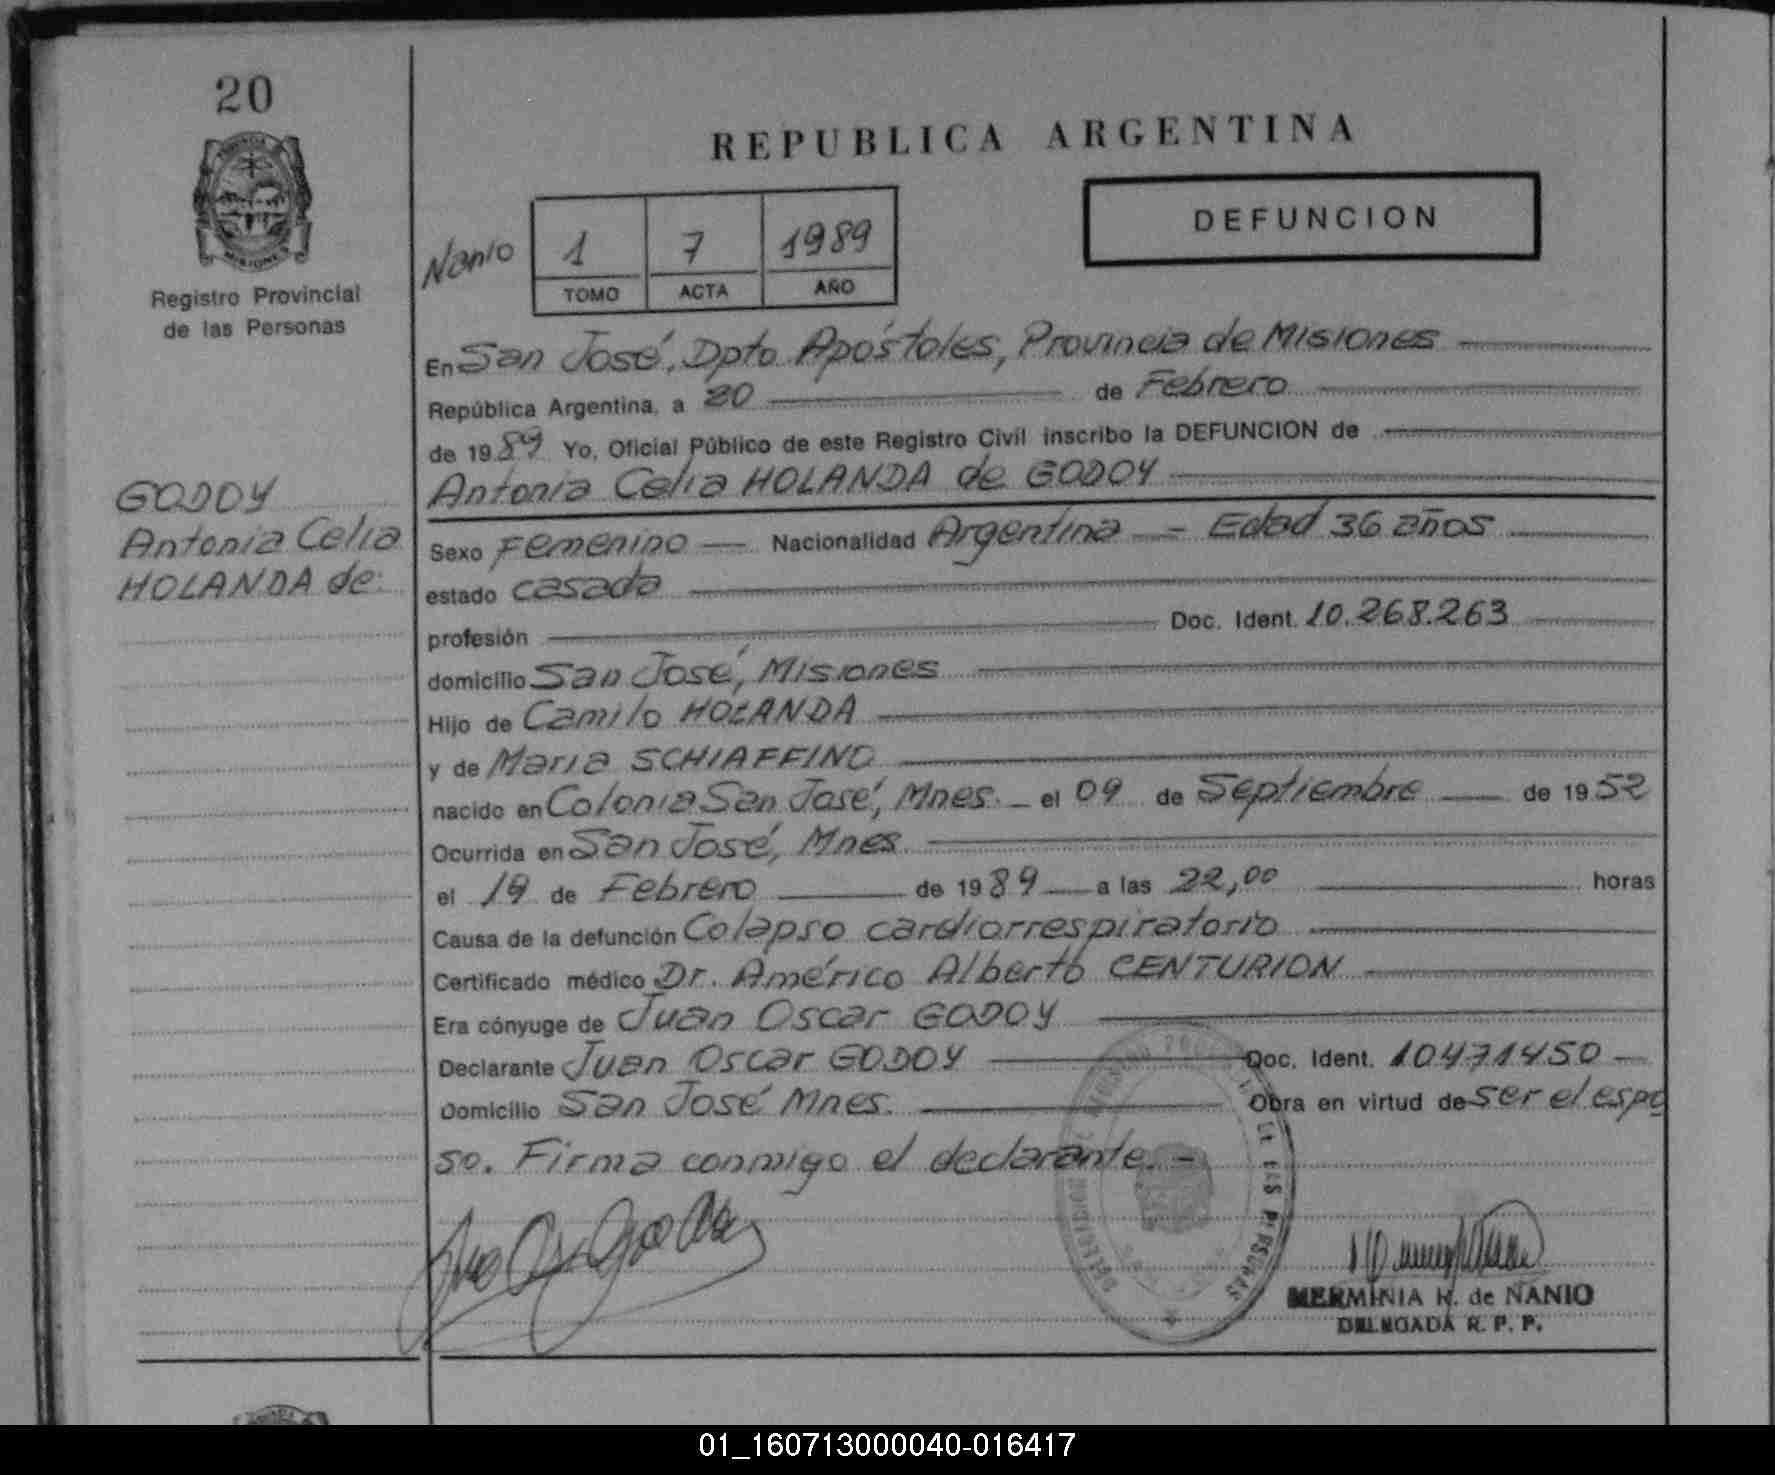 20
Registro Provincial
de las Personas
REPUBLICA ARGENTINA
DEFUNCION
Nanio
1 7 1989
TOMO ACTA AÑO
En San José, Dpto Apóstoles, Provincia de Misiones
República Argentina, a 20 de Febrero
de 1989 Yo, Oficial Público de este Registro Civil inscribo la DEFUNCION de
Antonia Celia HOLANDA de GODOY
GODOY
Antonia Celia
HOLANDA de
Sexo Femenino Nacionalidad Argentina - Edad 36 años
estado casada
profesión Doc. Ident. 10.268.263
domicilio San José, Misiones
Hijo de Camilo HOLANDA
y de Maria SCHIAFFINO
nacido en Colonia San José, Mnes. el 09 de Septiembre de 1952
Ocurrida en San José, Mnes.
el 19 de Febrero de 1989 a las 22,00 horas
Causa de la defunción Colapso cardiorrespiratorio
Certificado médico Dr. Américo Alberto CENTURION
Era cónyuge de Juan Oscar GODOY
Declarante Juan Oscar GODOY Doc. Ident. 10471450
Domicilio San José Mnes. Obra en virtud de ser el espo
so. Firma conmigo el declarante. -
HERMINIA H. de NANIO
DELEGADA R. P. P.
01_160713000040-016417